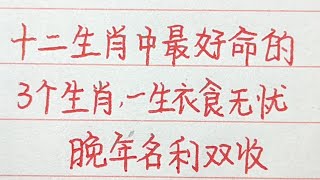 十二生肖中最好命的
3个生肖,一生衣食无忧
晚年名利双收